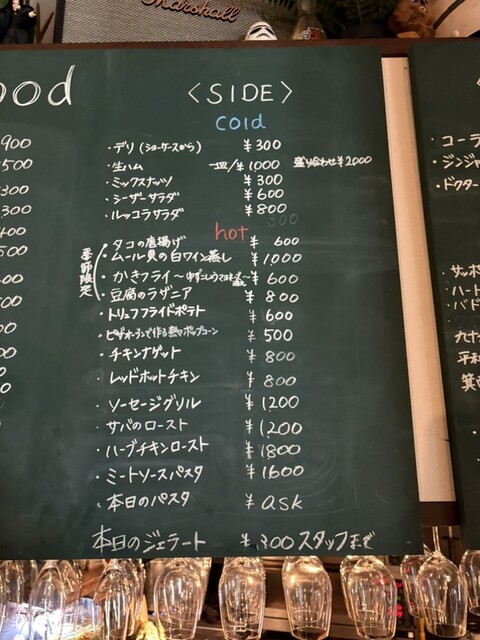 Marshall
ood
900
500
300
300
400
500
〈SIDE〉
cold
・デリ (ショーケースから) ¥300
・生ハム 一皿/¥1000 盛り合わせ¥2000
・ミックスナッツ ¥300
・シーザーサラダ ¥600
・ルッコラサラダ ¥800
hot
季節限定
・タコの唐揚げ ¥600
・ムール貝の白ワイン蒸し ¥1000
・かきフライ〜ゆずこしょうマヨネーズ〜 ¥600
・豆腐のラザニア ¥800
・トリュフフライドポテト ¥600
・ピザオーブンで作る熱々ポップコーン ¥500
・チキンナゲット ¥800
・レッドホットチキン ¥800
・ソーセージグリル ¥1200
・サバのロースト ¥1,200
・ハーブチキンロースト ¥1800
・ミートソースパスタ ¥1600
・本日のパスタ ¥ask
本日のジェラート ¥300 スタッフまで
・コーラ
・ジンジャ
・ドクター
・サッポ
ハート
バド
九十
平和
箕